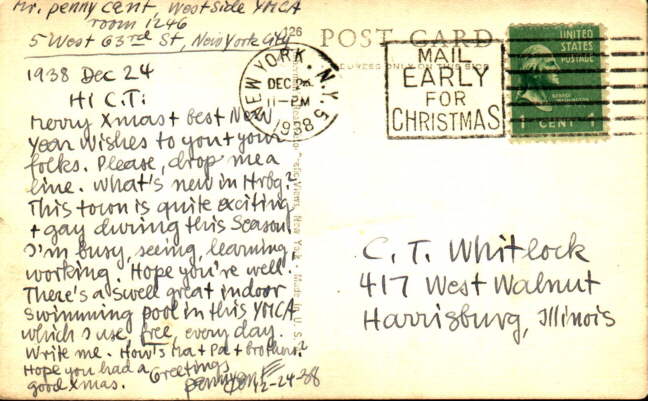 Mr. Penny Cent, West Side YMCA
room 1246
5 West 63rd St, New York City
1938 Dec 24
Hi C.T:
Merry Xmas + best New
Year Wishes to you + your
folks. Please, drop me a
line. What's new in Hrbg?
This town is quite exciting
+ gay during this Season.
I'm busy, seeing, learning,
working. Hope you're well.
There's a swell great indoor
Swimming pool in this YMCA
which I use, free, every day.
Write me. How's Ma + Pa + brothers?
Hope you had a
good Xmas.
Greetings
Penny Cent
12-24-38
126
POST CARD
ONLY ON THIS SIDE
NEW YORK, N.Y. 58
DEC
11-PM
1938
MAIL
EARLY
FOR
CHRISTMAS
UNITED
STATES
POSTAGE
GEORGE
WASHINGTON
1 CENT 1
New York - Made in U.S.
C. T. Whitlock
417 West Walnut
Harrisburg, Illinois